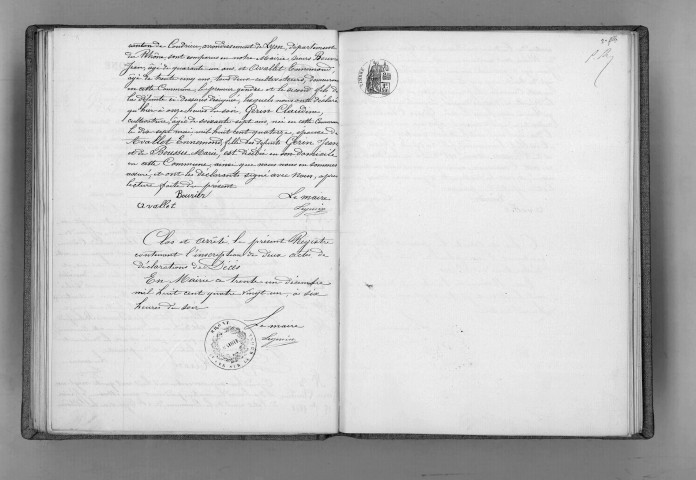 canton de Condrieu, arrondissement de Lyon, département
du Rhône, sont comparus en notre Mairie, sieurs Bouvier
Jean, âgé de quarante un ans, et Avallet Ennemond,
âgé de trente cinq ans, tous deux cultivateurs, demeurant
en cette Commune, le premier gendre et le second fils de
la défunte ci-dessous désignée, lesquels nous ont déclaré
qu'hier à onze heures du soir, Gerin Claudine,
cultivatrice, âgée de soixante sept ans, née en cette Commune
le dix sept mai mil huit cent quatorze, épouse de
Avallet Ennemond, fille des défunts Gerin Jean
et de Marie, est décédée en son domicile
en cette Commune, ainsi que nous nous en sommes
assuré, et ont les déclarants signé avec nous, après
lecture faite du présent
Bouvier Le maire
Avallet
Clos et arrêté le présent Registre
contenant l'inscription de deux actes de
déclarations de Décès
En Mairie ce trente un décembre
mil huit cent quatre vingt un, à six
heures du soir
Le maire